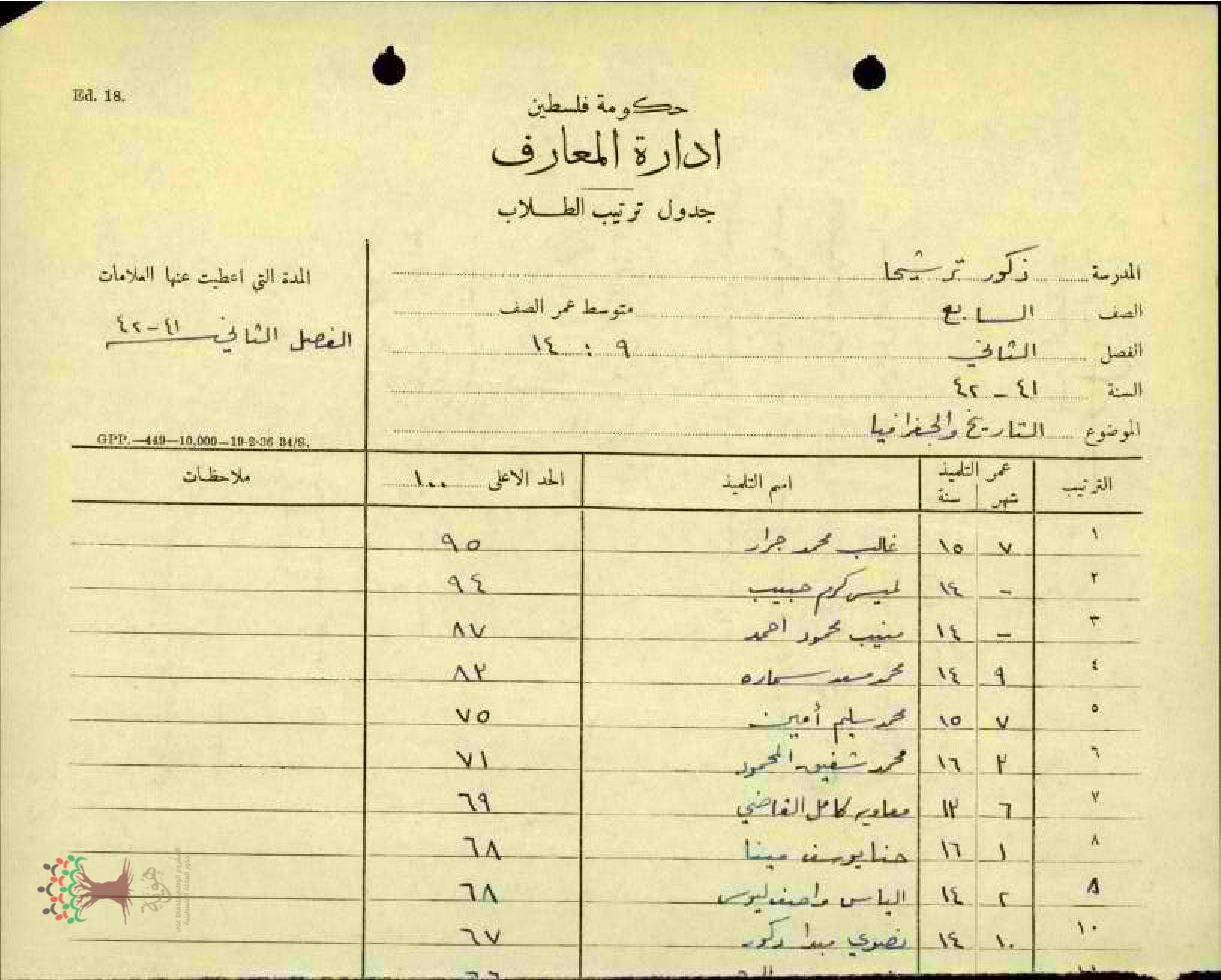 Ed. 18.
حكومة فلسطين
ادارة المعارف
جدول ترتيب الطلاب
المدرسة ذكور ترشيحا
الصف السابع متوسط عمر الصف
الفصل الثاني ٩ : ١٤
السنة ٤١ - ٤٢
الموضوع التاريخ والجغرافيا
المدة التي اعطيت عنها العلامات
الفصل الثاني ٤١-٤٢
GPP.—449—10,000—19-2-36 34/S.
الترتيب عمر التلميذ شهر سنة اسم التلميذ الحد الاعلى ١٠٠ ملاحظات
١ ٧ ١٥ غالب محمد جرار ٩٥
٢ - ١٤ لميس كرم حبيب ٩٤
٣ - ١٤ منيب محمود احمد ٨٧
٤ ٩ ١٤ محمد سعد سماره ٨٣
٥ ٧ ١٥ محمد سليم أمين ٧٥
٦ ٢ ١٦ محمد شفيق المحمود ٧١
٧ ٦ ١٣ معاويه كامل القاضي ٦٩
٨ ١ ١٦ حنا يوسف مينا ٦٨
٨ ٢ ١٤ الياس واصف ٦٨
١٠ ١٠ ١٤ ٦٧
هوية